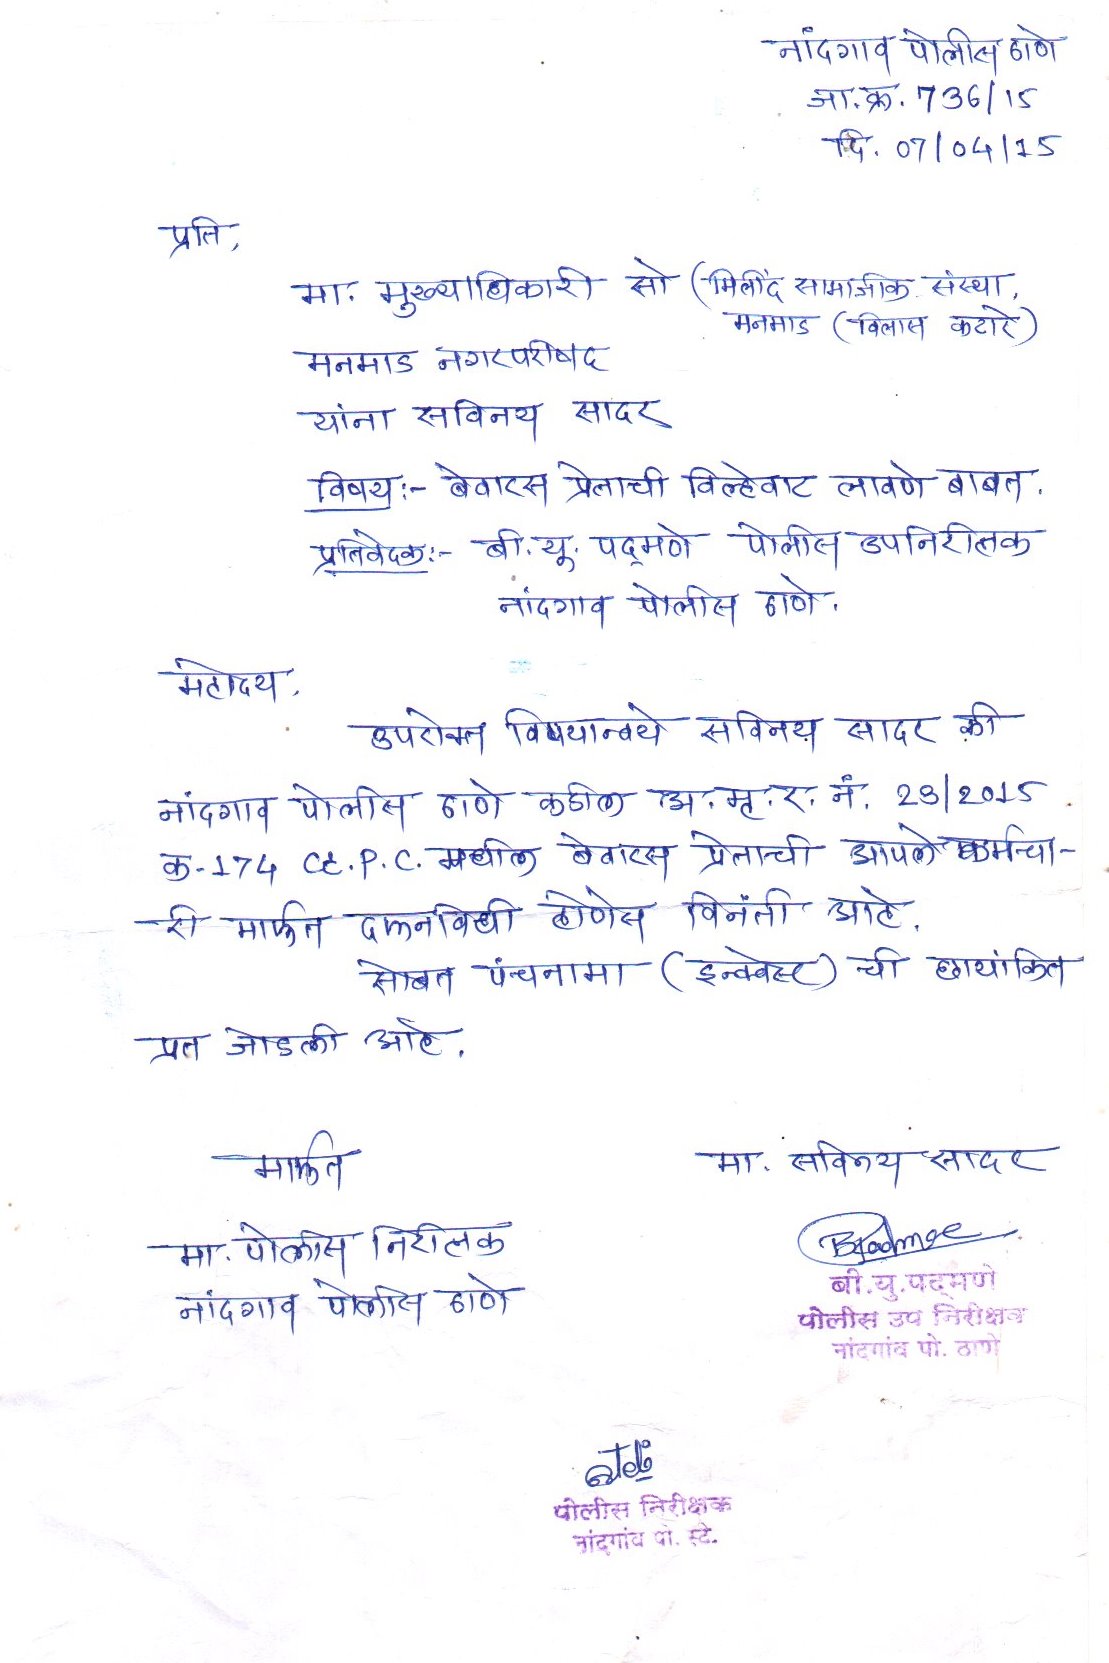 नांदगाव पोलीस ठाणे
जा.क्र. 736/15
दि. 07/04/15
प्रति,
मा. मुख्याधिकारी सो (मिलींद सामाजीक संस्था,
मनमाड (विलास कटारे)
मनमाड नगरपरीषद
यांना सविनय सादर
विषय:- बेवारस प्रेताची विल्हेवाट लावणे बाबत.
प्रतिवेदक:- बी.यू. पद्मणे पोलीस उपनिरीक्षक
नांदगाव पोलीस ठाणे.
महोदय,
उपरोक्त विषयान्वये सविनय सादर की
नांदगाव पोलीस ठाणे कडील अ.मृ.र.नं. 23/2015
क-174 CR.P.C. मधील बेवारस प्रेताची आपले कर्मचा-
री मार्फत दफनविधी होणेस विनंती आहे.
सोबत पंचनामा (इन्क्वेस्ट) ची छायांकित
प्रत जोडली आहे.
मार्फत
मा. सविनय सादर
मा. पोलीस निरीक्षक
नांदगाव पोलीस ठाणे
बी.यु.पद्मणे
पोलीस उप निरीक्षक
नांदगांव पो. ठाणे
पोलीस निरीक्षक
नांदगांव पो. स्टे.